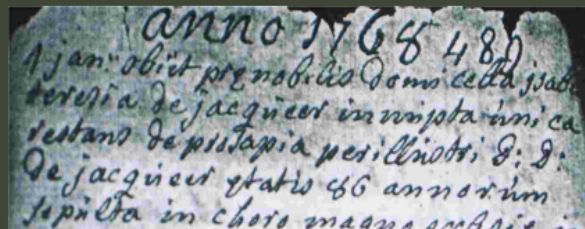 anno 1768 480
1 jan: obiit prænobilis domicella isab
teresia de jacqueer innupta unica
restans de prosapia perillustri D: D:
De jacqueer ætatis 86 annorum
sepulta in choro magno